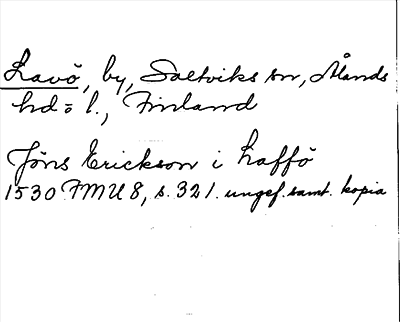 Lavö, by, Saltviks sn, Ålands
hd = l., Finland
Jöns Erickson i Laffö
1530 FMU 8, s. 321. ungef. samt. kopia